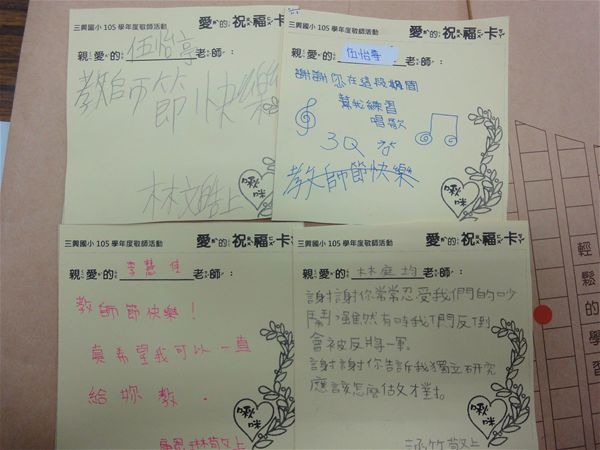 三興國小 105 學年度敬師活動
愛的祝福卡
親愛的伍怡亭老師：
教師節快樂
林文皓上
啾咪
三興國小 105 學年度敬師活動
愛的祝福卡
親愛的伍怡亭老師：
謝謝你在這段期間
幫我練習
唱歌
3Q
教師節快樂
啾咪
三興國小 105 學年度敬師活動
愛的祝福卡
親愛的李慧佳老師：
教師節快樂！
真希望我可以一直
給妳教．
琳敬上
啾咪
三興國小 105 學年度敬師活動
愛的祝福卡
親愛的林庭均老師：
謝謝你常常忍受我們的吵
鬧，雖然有時我們反倒
會被反將一軍。
謝謝你告訴我獨立研究
應該怎麼做才對。
竹敬上
啾咪
輕鬆的學習